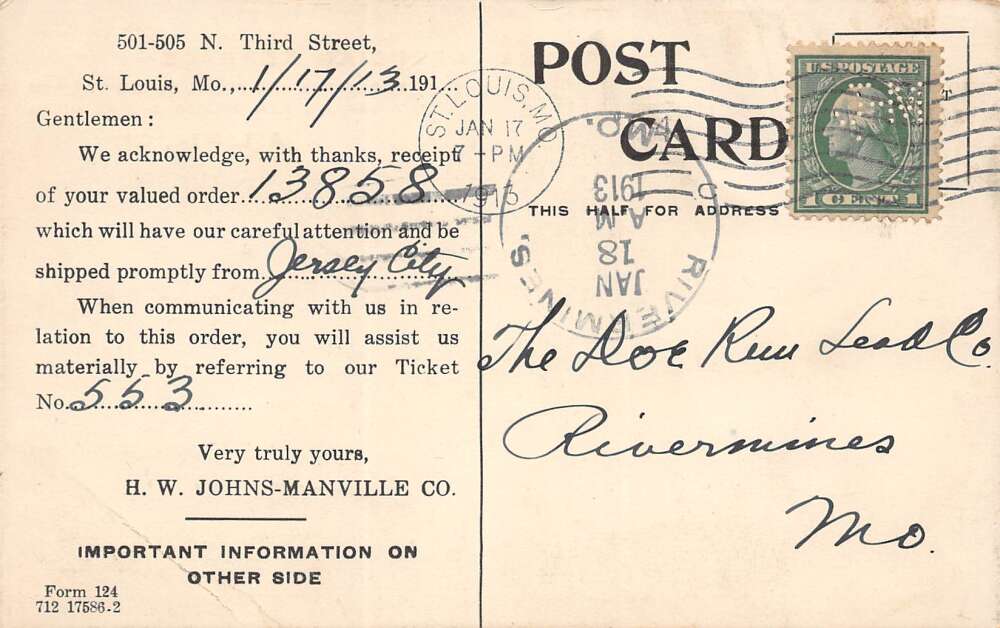 501-505 N. Third Street,
St. Louis, Mo., 1/17/13 191
Gentlemen:
We acknowledge, with thanks, receipt
of your valued order 13858
which will have our careful attention and be
shipped promptly from Jersey City
When communicating with us in re-
lation to this order, you will assist us
materially by referring to our Ticket
No. 553
Very truly yours,
H. W. JOHNS-MANVILLE CO.
IMPORTANT INFORMATION ON
OTHER SIDE
Form 124
712 17586-2
POST
CARD
THIS HALF FOR ADDRESS
ST. LOUIS, MO
JAN 17
7-PM
1913
RIVERMINES
MO.
JAN
18
A.M
1913
U.S. POSTAGE
1 CENT 1
The Doe Run Lead Co.
Rivermines
Mo.